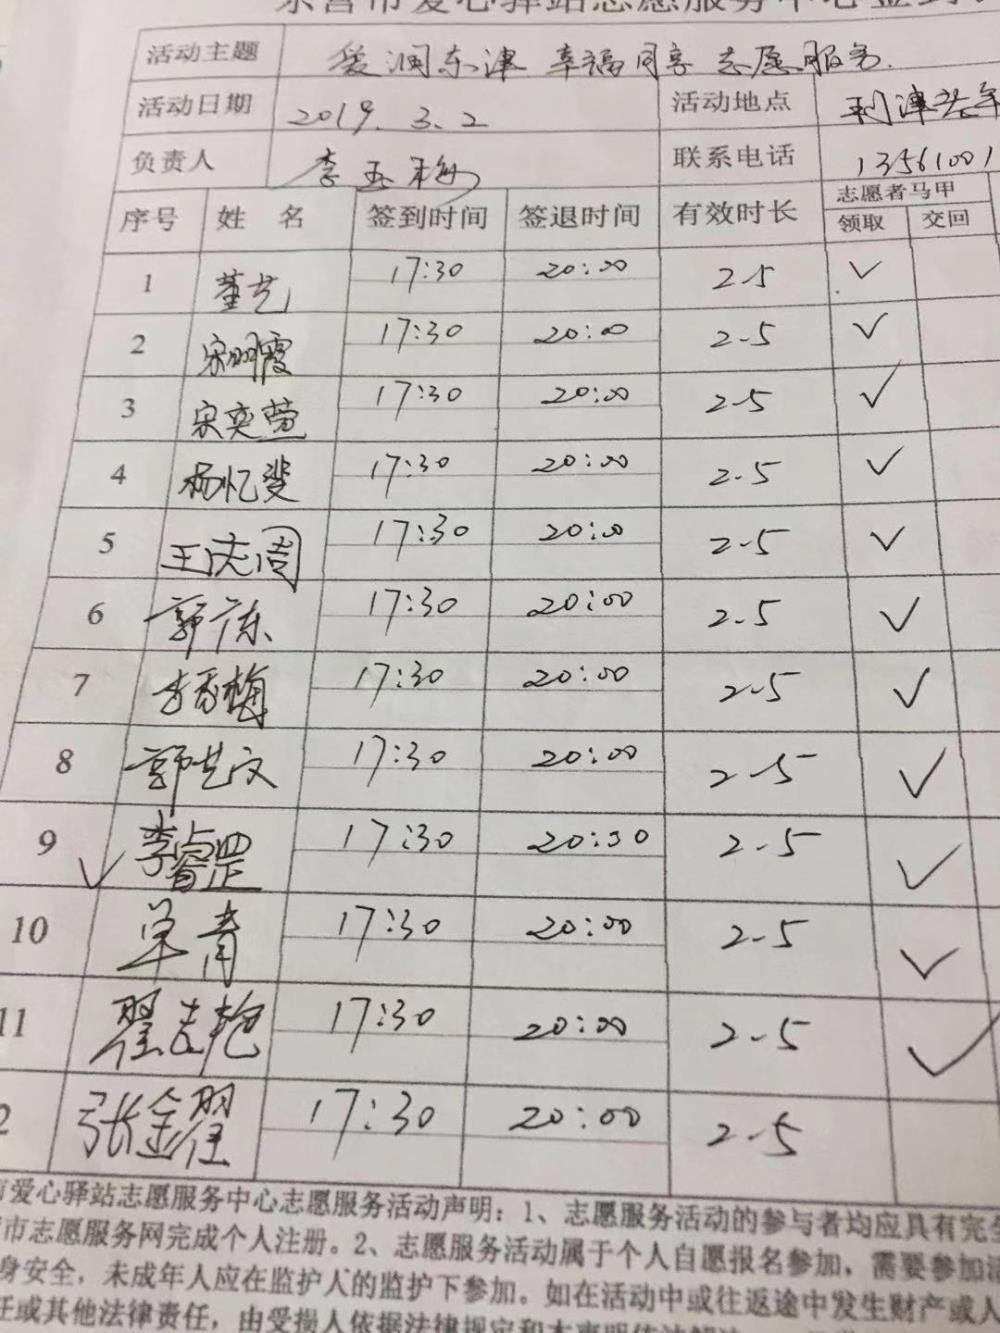 东营市爱心驿站志愿服务中心签到
活动主题 爱润东津 幸福同享 志愿服务.
活动日期 2019.3.2 活动地点 利津
负责人 李玉梅 联系电话 13561001
序号 姓 名 签到时间 签退时间 有效时长 志愿者马甲
领取 交回
1 董艺 17:30 20:00 2.5 ✓
2 宋明霞 17:30 20:00 2.5 ✓
3 宋奕萱 17:30 20:00 2.5 ✓
4 杨忆斐 17:30 20:00 2.5 ✓
5 王志周 17:30 20:00 2.5 ✓
6 郭广东 17:30 20:00 2.5 ✓
7 李香梅 17:30 20:00 2.5 ✓
8 郭艺文 17:30 20:00 2.5 ✓
9 ✓ 李睿罡 17:30 20:30 2.5 ✓
10 单青 17:30 20:00 2.5 ✓
11 翟志艳 17:30 20:00 2.5 ✓
2 张金翟 17:30 20:00 2.5
市爱心驿站志愿服务中心志愿服务活动声明：1、志愿服务活动的参与者均应具有完全
市志愿服务网完成个人注册。2、志愿服务活动属于个人自愿报名参加，需要参加活
身安全，未成年人应在监护人的监护下参加。如在活动中或往返途中发生财产或人
任或其他法律责任，由受损人依据法律规定和本声明依法解决